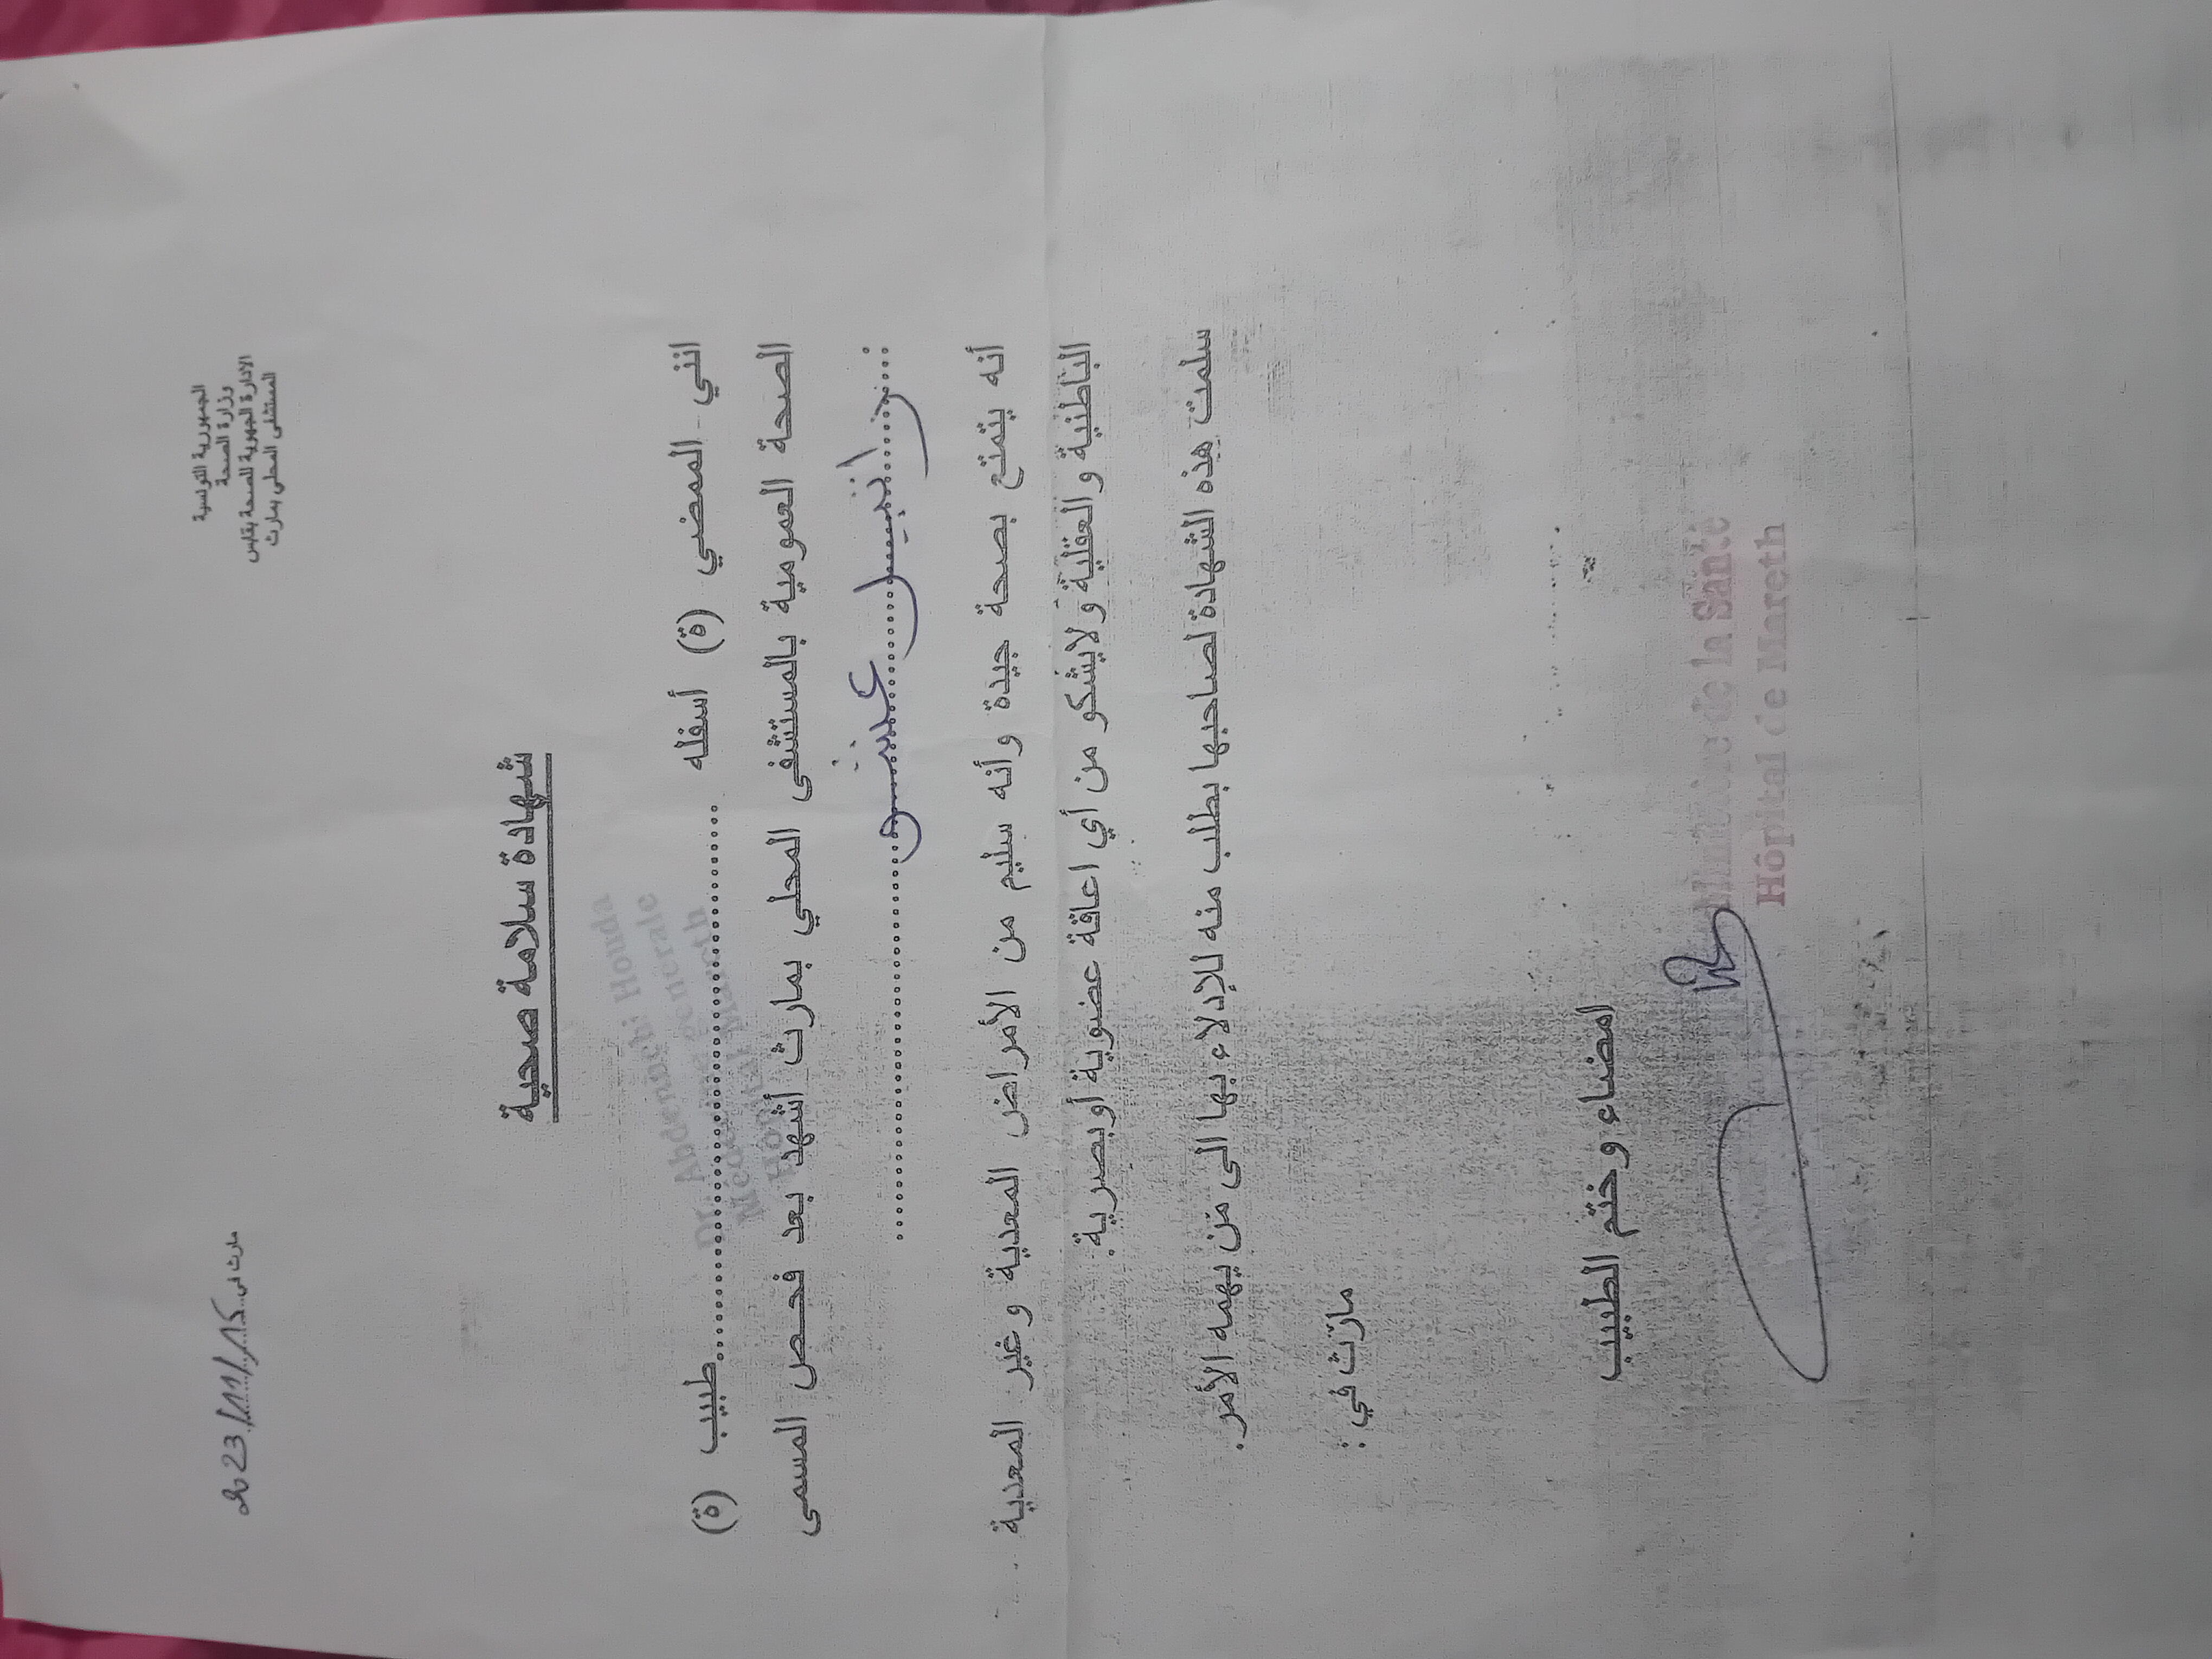 الجمهورية التونسية
وزارة الصحة
الادارة الجهوية للصحة بقابس
المستشفى المحلي بمارث
مارث في 2023/11/15
شهادة سلامة صحية
انني الممضي (ة) أسفله ........ طبيب (ة)
Dr. Abdennebi Houda
Médecine générale
Hôpital Mareth
الصحة العمومية بالمستشفى المحلي بمارث أشهد بعد فحص المسمى
أنه يتمتع بصحة جيدة وأنه سليم من الأمراض المعدية وغير المعدية
الباطنية والعقلية ولايشكو من أي اعاقة عضوية أوبصرية.
سلمت هذه الشهادة لصاحبها بطلب منه للإدلاء بها الى من يهمه الأمر.
مارث في :
امضاء وختم الطبيب
Ministère de la Santé
Hôpital de Mareth